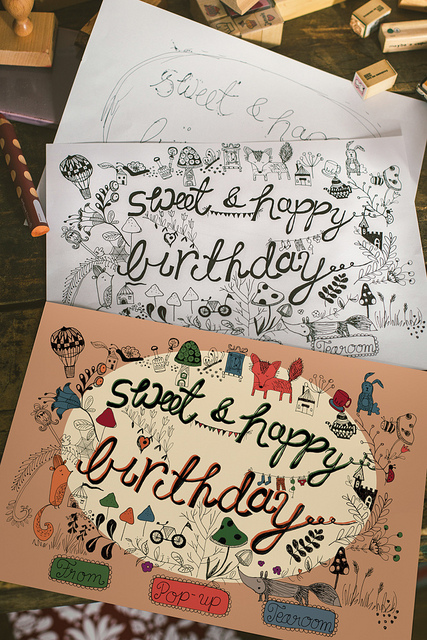 sweet & ha
sweet & happy
birthday
Tearoom
sweet & happy
birthday
From
Pop-up
Tearoom